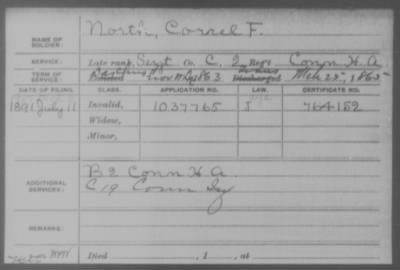 NAME OF SOLDIER: North, Correl F.
SERVICE: Late rank, Sergt Co. C, 2 Reg't Conn H. A.
TERM OF SERVICE: Enlisted Nov 1863 Discharged Mch 25, 1865
DATE OF FILING. CLASS. APPLICATION NO. LAW. CERTIFICATE NO.
1891 July 11 Invalid, 1037765 764152
Widow,
Minor,
ADDITIONAL SERVICES: B 2 Conn H. A.
C 19 Conn Inf
REMARKS:
Died , 1 , at